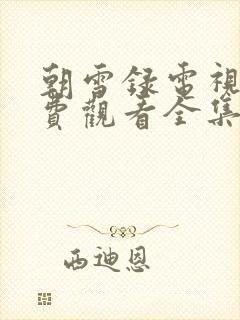 朝雪録電視
費觀看全集
西迪恩